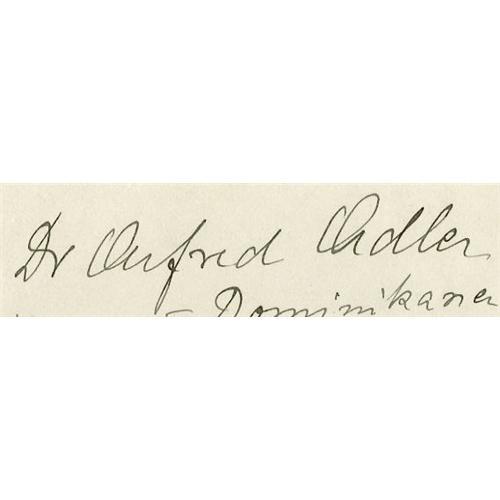 Dr Alfred Adler
– Dominikaner